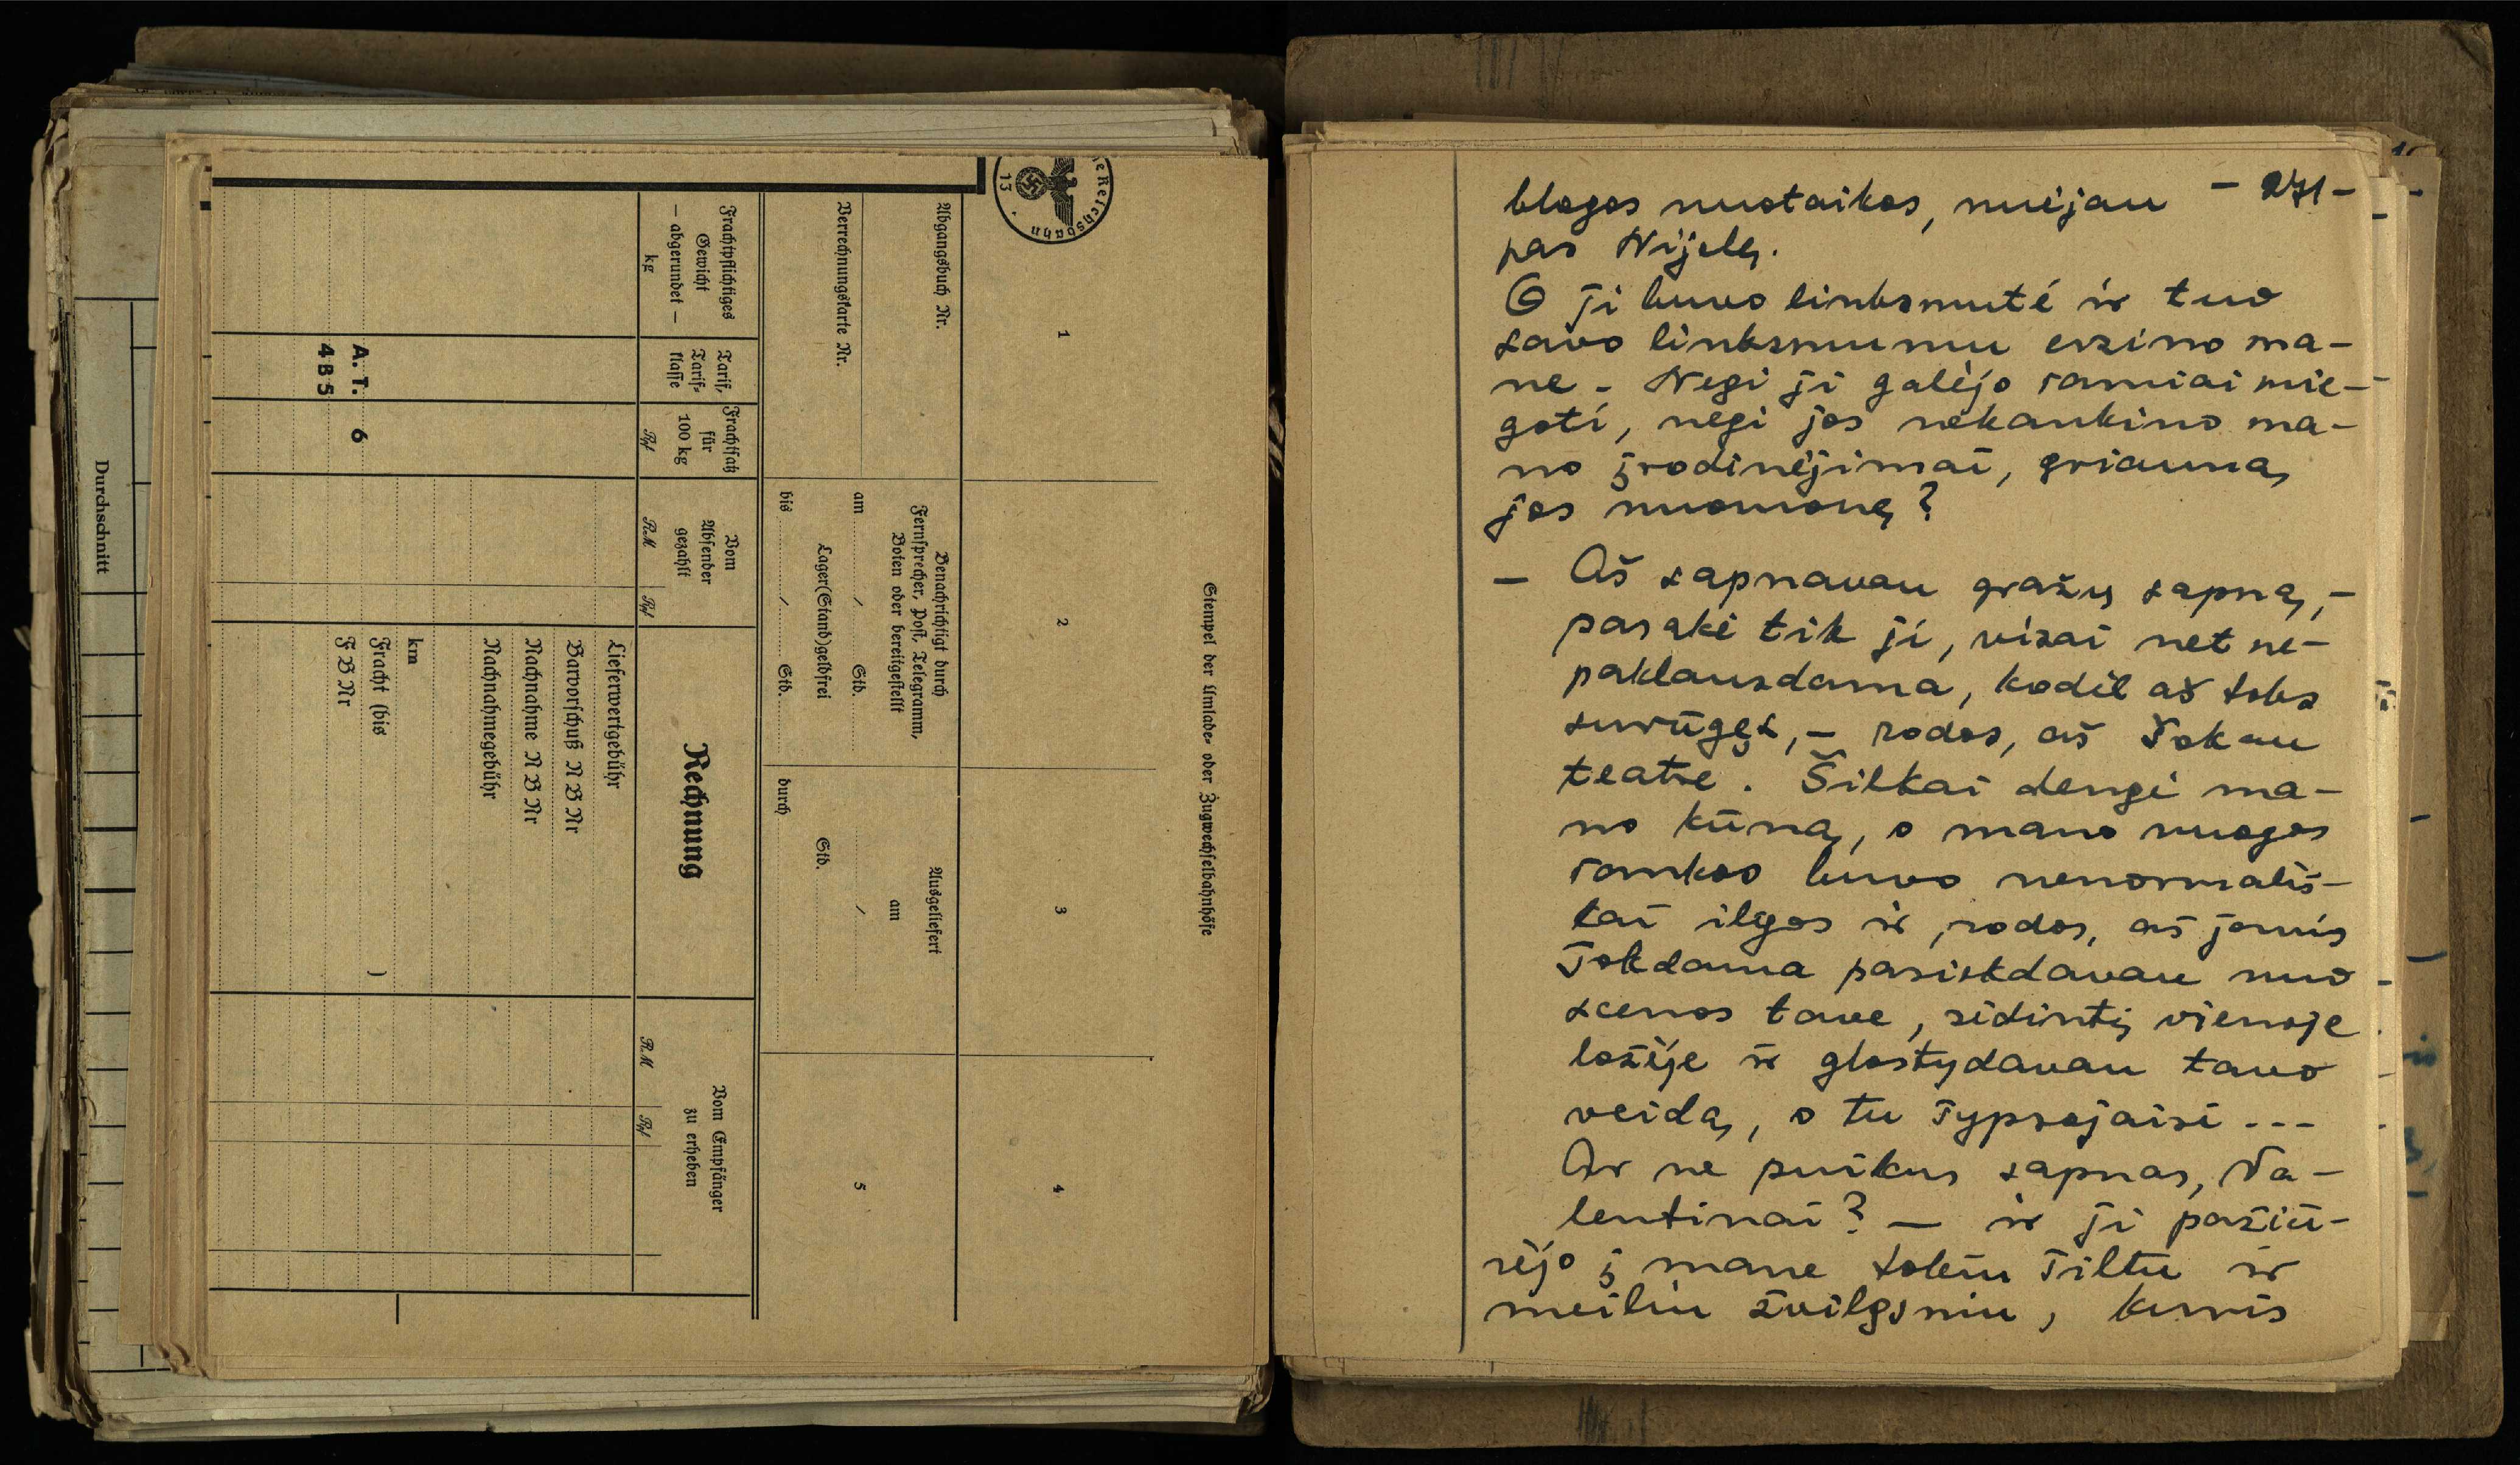 Durchschnitt
e Reichsbahn
13
Stempel der Umlade- oder Zugwechselbahnhöfe
1
2
3
4
Abgangsbuch Nr.
Verrechnungskarte Nr.
Benachrichtigt durch
Fernsprecher, Post, Telegramm,
Boten oder bereitgestellt
am / Std.
Lager(Stand)geldfrei
bis / Std.
Ausgeliefert
am
/
Std.
durch
5
Frachtpflichtiges
Gewicht
— abgerundet —
kg
Tarif,
Tarif-
klasse
Frachtsatz
für
100 kg
Rpf
Vom
Absender
gezahlt
RM
Rpf
Rechnung
Vom Empfänger
zu erheben
RM
Rpf
Lieferwertgebühr
Barvorschuß N B Nr
Nachnahme N B Nr
Nachnahmegebühr
km
Fracht (bis )
F B Nr
A. T. 6
4 B 5
- 271 -
blogos nuotaikos, nuėjau
pas Nijolę.
O ji buvo linksmutė ir tuo
savo linksmumu erzino ma-
ne. Negi ji galėjo ramiai mie-
goti, negi jos nekankino ma-
no įrodinėjimai, griauną
jos nuomonę?
— Aš sapnavau gražų sapną, -
pasakė tik ji, visai net ne-
paklausdama, kodėl aš toks
surūgęs, - rodos, aš šokau
teatre. Šilkai dengė ma-
no kūną, o mano nuogos
rankos buvo nenormališ-
kai ilgos ir, rodos, aš jomis
šokdama pasiekdavau nuo
scenos tave, sėdintį vienoje
ložėje ir glostydavau tavo
veidą, o tu šypsojaisi ---
Ar ne puikus sapnas, Va-
lentinai? — ir ji pažiū-
rėjo į mane tokiu šiltu ir
meiliu žvilgsniu, kuris